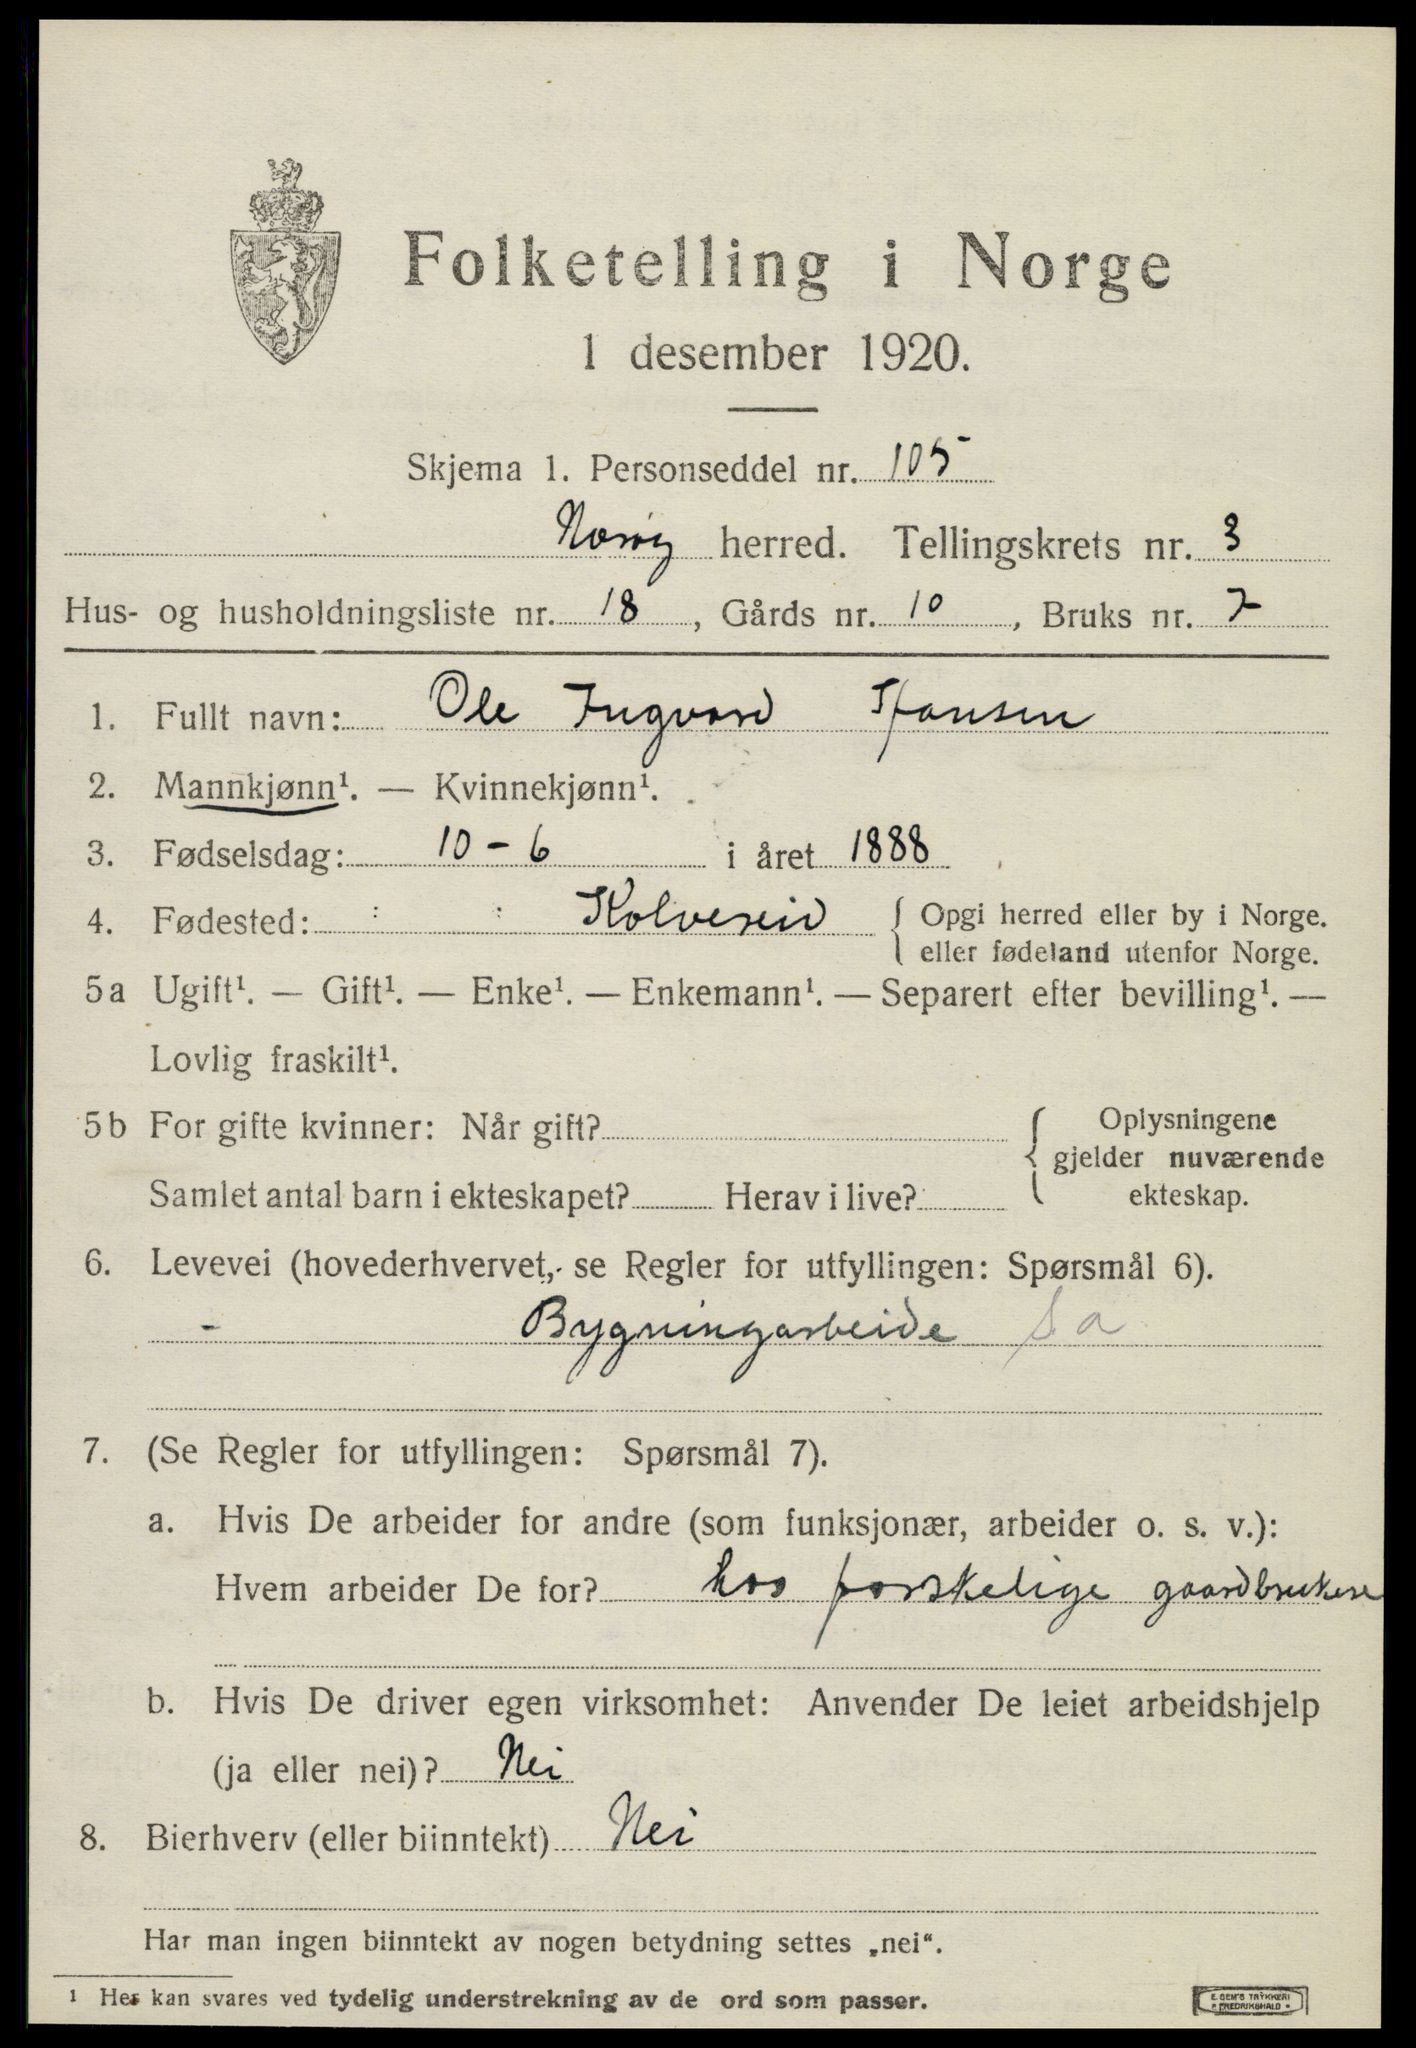 Folketelling i Norge
1 desember 1920.
Skjema 1. Personseddel nr. 105
Nærøy herred. Tellingskrets nr. 3
Hus- og husholdningsliste nr. 18, Gårds nr. 10, Bruks nr. 7
1. Fullt navn: Ole Ingvard Hansen
2. Mannkjønn¹. — Kvinnekjønn¹.
3. Fødselsdag: 10 - 6 i året 1888
4. Fødested: Kolvereid { Opgi herred eller by i Norge.
eller fødeland utenfor Norge.
5a Ugift¹. — Gift¹. — Enke¹. — Enkemann¹. — Separert efter bevilling¹. —
Lovlig fraskilt¹.
5b For gifte kvinner: Når gift?
Samlet antal barn i ekteskapet? Herav i live?
Oplysningene
gjelder nuværende
ekteskap.
6. Levevei (hovederhvervet, se Regler for utfyllingen: Spørsmål 6).
- Bygningarbeide Sa
7. (Se Regler for utfyllingen: Spørsmål 7).
a. Hvis De arbeider for andre (som funksjonær, arbeider o. s. v.):
Hvem arbeider De for? hos forskelige gaardbrukere
b. Hvis De driver egen virksomhet: Anvender De leiet arbeidshjelp
(ja eller nei)? Nei
8. Bierhverv (eller biinntekt) Nei
Har man ingen biinntekt av nogen betydning settes „nei“.
¹ Her kan svares ved tydelig understrekning av de ord som passer.
E. SEM'S TRYKKERI
FREDRIKSHALD